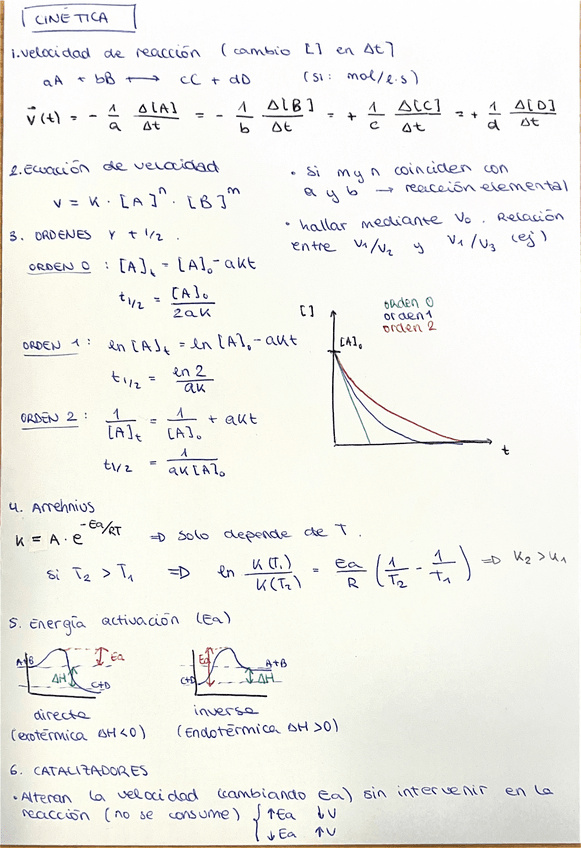 CINÉTICA
1. velocidad de reacción (cambio [] en Δt]
aA + bB ⟷ cC + dD (SI: mol/l·s)
v⃗(t) = - 1/a Δ[A]/Δt = - 1/b Δ[B]/Δt = + 1/c Δ[C]/Δt = + 1/d Δ[D]/Δt
2. Ecuación de velocidad
v = K · [A]^n · [B]^m
• si m y n coinciden con
a y b → reacción elemental
• hallar mediante v₀. Relación
entre v₁/v₂ y v₁/v₃ (ej)
3. ORDENES Y t 1/2.
ORDEN 0 : [A]t = [A]₀ - aKt
t1/2 = [A]₀/2aK
ORDEN 1 : ln [A]t = ln [A]₀ - aKt
t1/2 = ln 2/aK
ORDEN 2 : 1/[A]t = 1/[A]₀ + aKt
t1/2 = 1/aK[A]₀
[]
orden 0
orden 1
orden 2
[A]₀
t
4. Arrehnius
K = A · e^(-Ea/RT) ⇒ solo depende de T.
si T₂ > T₁ ⇒ ln K(T₁)/K(T₂) = Ea/R (1/T₂ - 1/T₁) ⇒ K₂ > K₁
5. Energía activación (Ea)
A+B Ea ΔH C+D
Ea A+B C+D ΔH
directa
(exotérmica ΔH<0)
inversa
(Endotérmica ΔH>0)
6. CATALIZADORES
• Alteran la velocidad (cambiando Ea) sin intervenir en la
reacción (no se consume) { ↑Ea ↓V
↓Ea ↑V